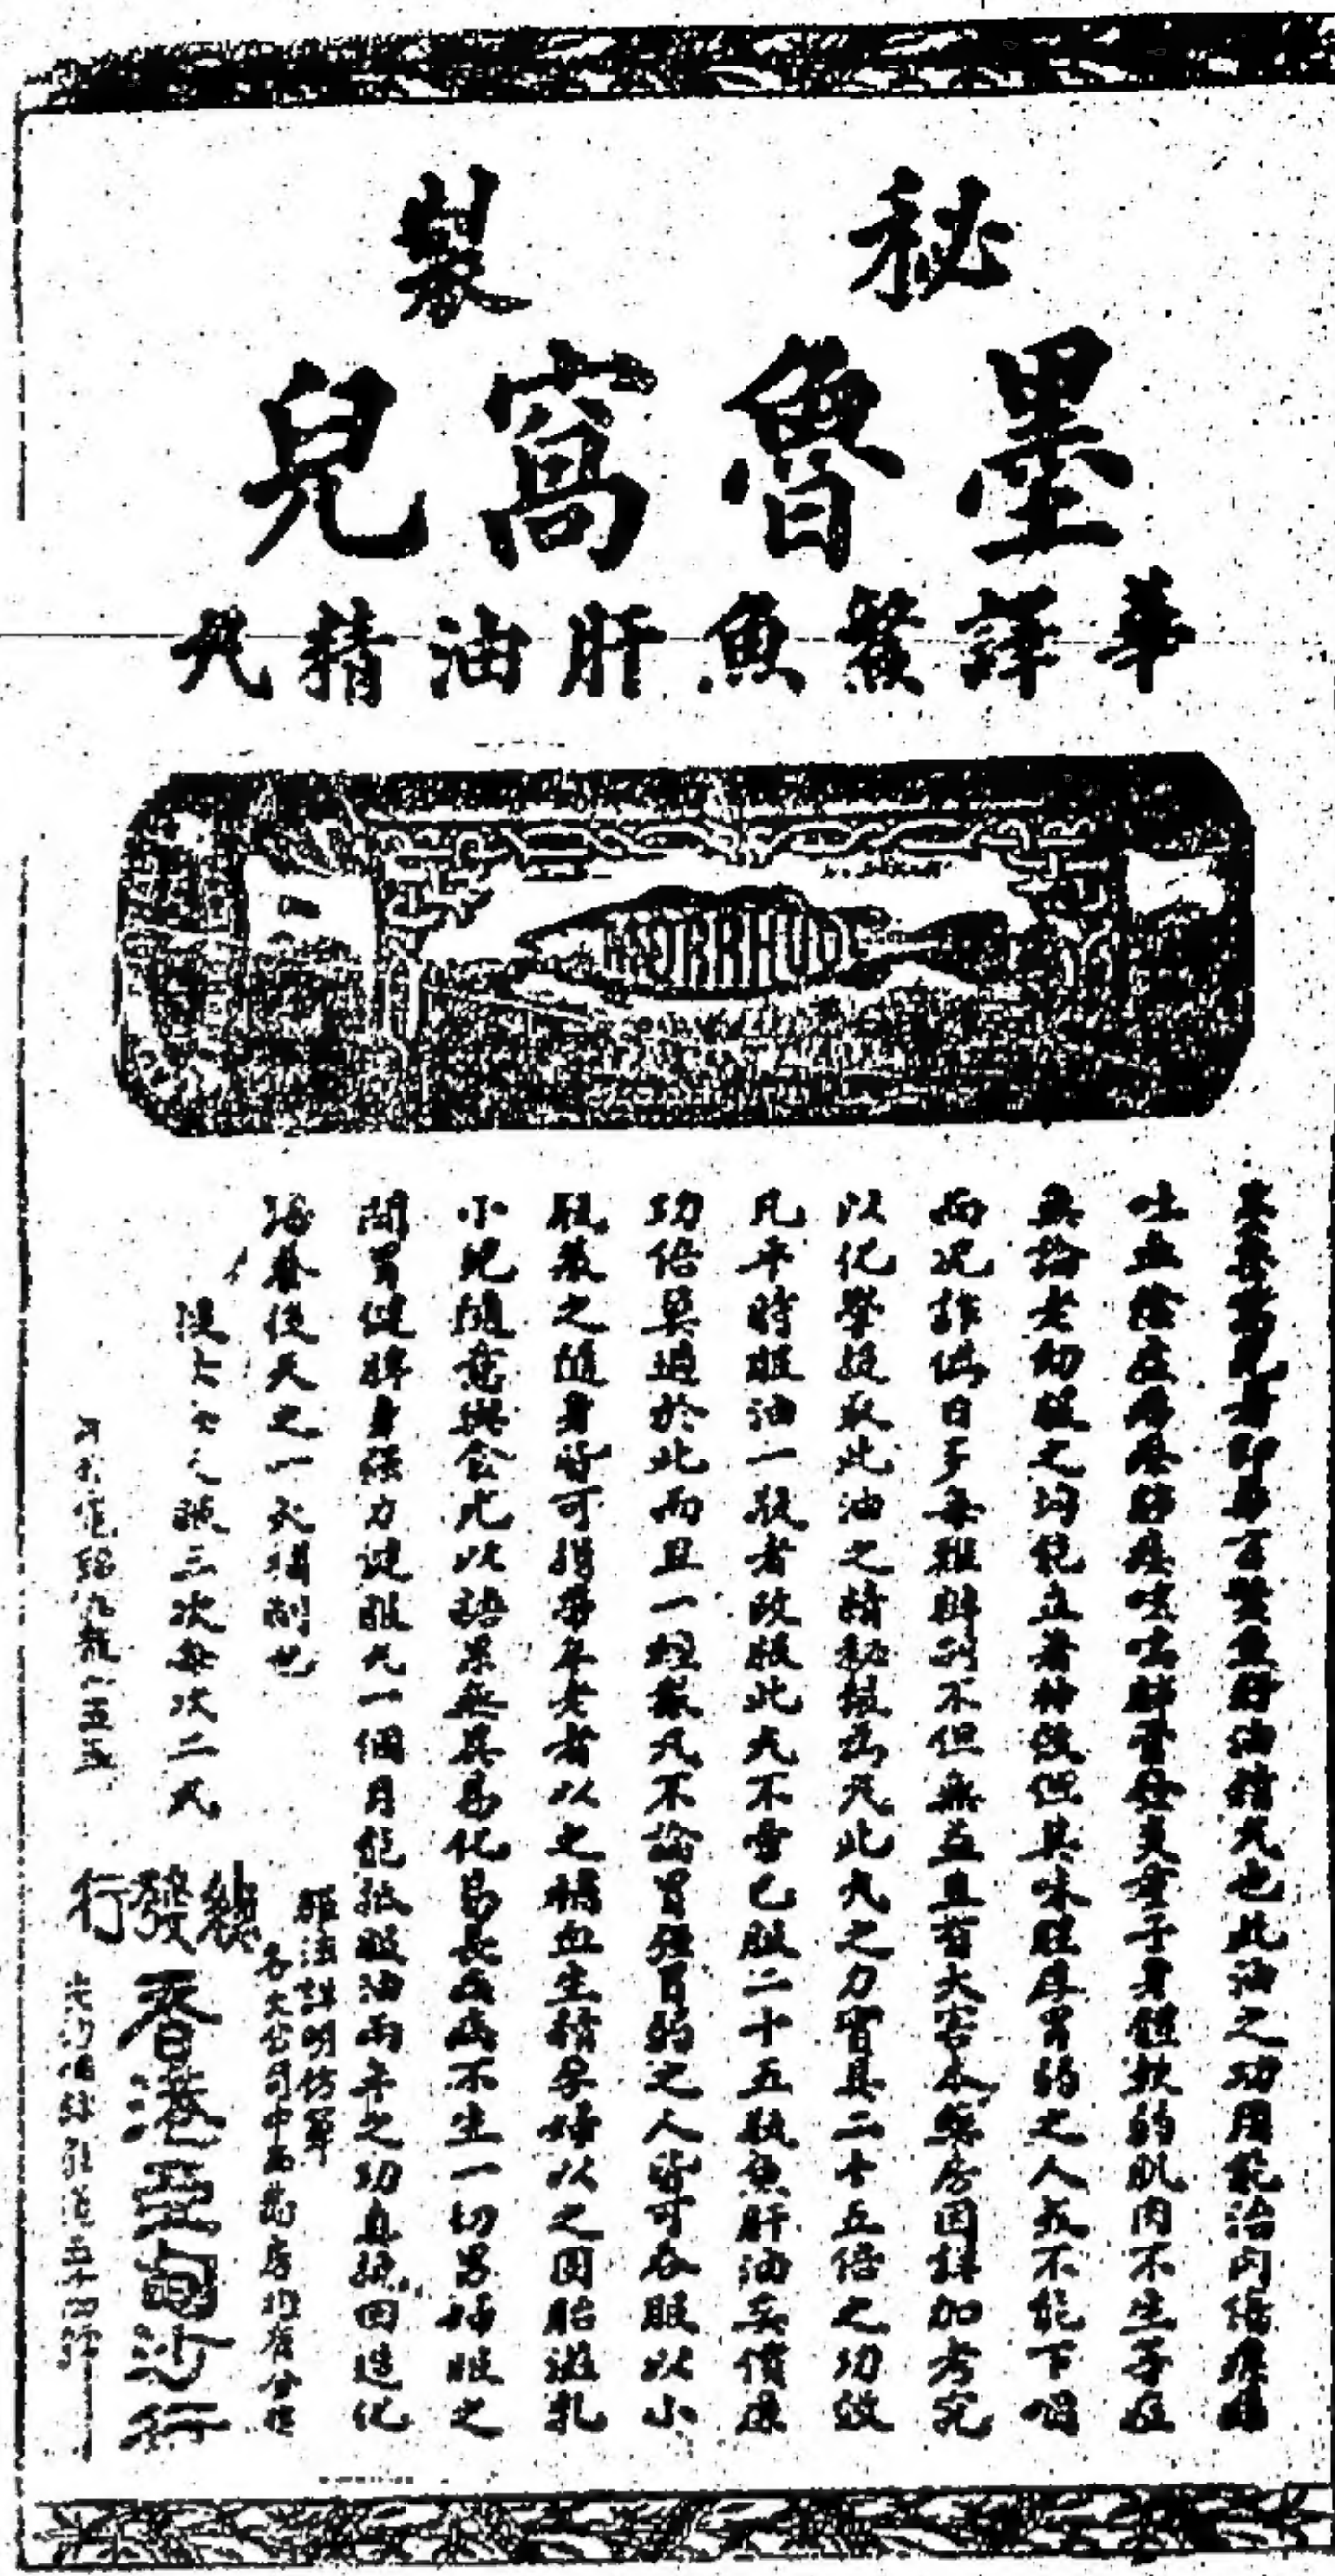 秘製
墨魯窩兒
華譯鰵魚肝油精丸
MORRHUOL
墨魯窩兒者即華言鰵魚肝油精丸也此油之功用能治內傷
吐血陰虛癆瘵肺痿咳嗽肺胃孩童子身體軟弱肌肉不生等症
無論老幼服之均能立著神效但其味腥厚胃弱之人每不能下咽
而况詐偽日多每難辨別不但無益且有大害本藥房因詳加考究
以化學提取此油之精秘製為丸此丸之力實具二十五倍之功效
凡平時服油一瓶者改服此丸不啻已服二十五瓶魚肝油矣價廉
功倍莫過於此而且一經製丸不論胃強胃弱之人皆可吞服以小
瓶裝之隨身皆可携帶年老者以之補血生精孕婦以之固胎滋乳
小兒隨意與食比以糖菓無異易化易長百病不生一切男婦服之
開胃健脾身強力健服丸一個月能抵服油兩年之功真挽回造化
培養後天之一大補劑也
服三次每次二丸
服法詳明仿單
各大公司中西藥房均有分售
總發行
香港
行